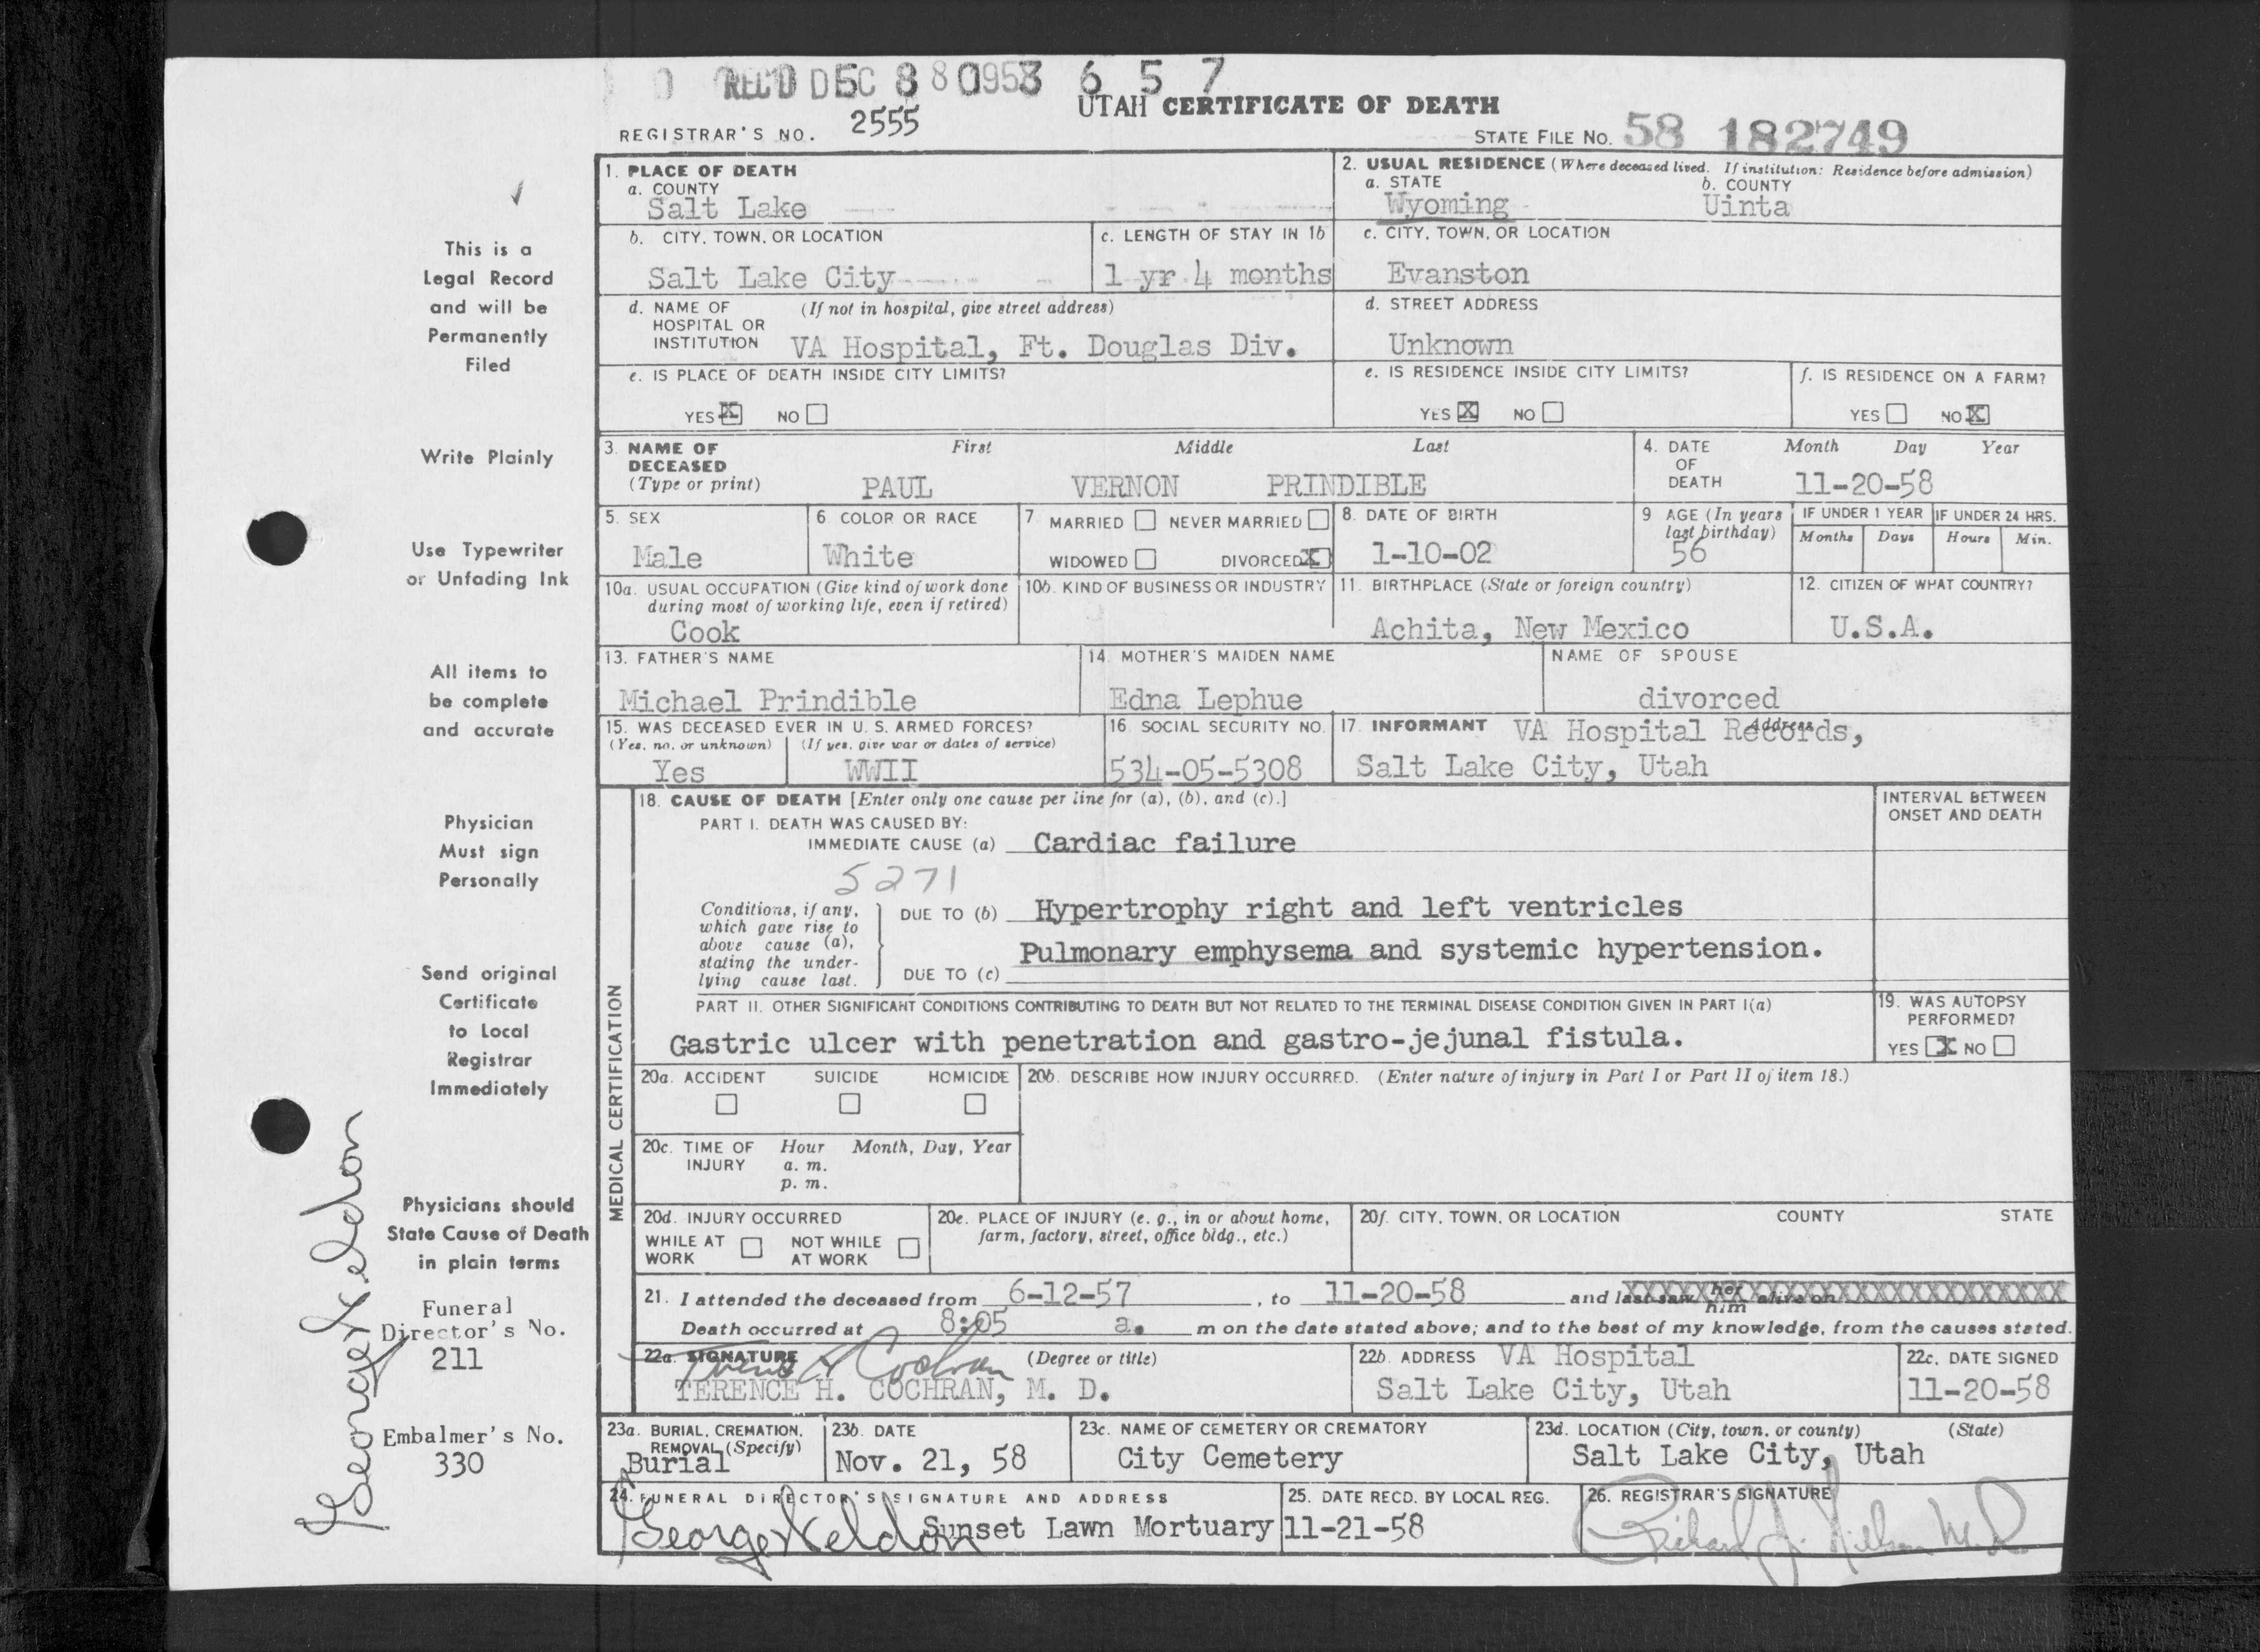 REC'D DEC 8 8 0958 6 5 7
UTAH CERTIFICATE OF DEATH
REGISTRAR'S NO. 2555
STATE FILE NO. 58 182749
This is a
Legal Record
and will be
Permanently
Filed
Write Plainly
Use Typewriter
or Unfading Ink
All items to
be complete
and accurate
Physician
Must sign
Personally
Send original
Certificate
to Local
Registrar
Immediately
Physicians should
State Cause of Death
in plain terms
Funeral
Director's No.
211
Embalmer's No.
330
George Neldon
1. PLACE OF DEATH
a. COUNTY
Salt Lake
2. USUAL RESIDENCE (Where deceased lived. If institution: Residence before admission)
a. STATE b. COUNTY
Wyoming Uinta
b. CITY, TOWN, OR LOCATION
Salt Lake City
c. LENGTH OF STAY IN 1b
1 yr 4 months
c. CITY, TOWN, OR LOCATION
Evanston
d. NAME OF (If not in hospital, give street address)
HOSPITAL OR
INSTITUTION VA Hospital, Ft. Douglas Div.
d. STREET ADDRESS
Unknown
e. IS PLACE OF DEATH INSIDE CITY LIMITS?
YES X NO
e. IS RESIDENCE INSIDE CITY LIMITS?
YES X NO
f. IS RESIDENCE ON A FARM?
YES NO X
3. NAME OF First Middle Last
DECEASED
(Type or print) PAUL VERNON PRINDIBLE
4. DATE Month Day Year
OF
DEATH 11-20-58
5. SEX
Male
6. COLOR OR RACE
White
7. MARRIED NEVER MARRIED
WIDOWED DIVORCED X
8. DATE OF BIRTH
1-10-02
9. AGE (In years
last birthday)
56
IF UNDER 1 YEAR IF UNDER 24 HRS.
Months Days Hours Min.
10a. USUAL OCCUPATION (Give kind of work done
during most of working life, even if retired)
Cook
10b. KIND OF BUSINESS OR INDUSTRY
11. BIRTHPLACE (State or foreign country)
Achita, New Mexico
12. CITIZEN OF WHAT COUNTRY?
U.S.A.
13. FATHER'S NAME
Michael Prindible
14. MOTHER'S MAIDEN NAME
Edna Lephue
NAME OF SPOUSE
divorced
15. WAS DECEASED EVER IN U. S. ARMED FORCES?
(Yes, no, or unknown) (If yes, give war or dates of service)
Yes WWII
16. SOCIAL SECURITY NO.
534-05-5308
17. INFORMANT Address
VA Hospital Records,
Salt Lake City, Utah
MEDICAL CERTIFICATION
18. CAUSE OF DEATH [Enter only one cause per line for (a), (b), and (c).]
INTERVAL BETWEEN
ONSET AND DEATH
PART I. DEATH WAS CAUSED BY:
IMMEDIATE CAUSE (a) Cardiac failure
5271
Conditions, if any,
which gave rise to
above cause (a),
stating the under-
lying cause last.
DUE TO (b) Hypertrophy right and left ventricles
Pulmonary emphysema and systemic hypertension.
DUE TO (c)
PART II. OTHER SIGNIFICANT CONDITIONS CONTRIBUTING TO DEATH BUT NOT RELATED TO THE TERMINAL DISEASE CONDITION GIVEN IN PART I(a)
Gastric ulcer with penetration and gastro-jejunal fistula.
19. WAS AUTOPSY
PERFORMED?
YES X NO
20a. ACCIDENT SUICIDE HOMICIDE
20b. DESCRIBE HOW INJURY OCCURRED. (Enter nature of injury in Part I or Part II of item 18.)
20c. TIME OF Hour Month, Day, Year
INJURY a. m.
p. m.
20d. INJURY OCCURRED
WHILE AT NOT WHILE
WORK AT WORK
20e. PLACE OF INJURY (e. g., in or about home,
farm, factory, street, office bldg., etc.)
20f. CITY, TOWN, OR LOCATION COUNTY STATE
21. I attended the deceased from 6-12-57, to 11-20-58 and last saw her him alive on XXXXXXXXXXXXXXXXXXXXXXXX
Death occurred at 8:05 a. m on the date stated above; and to the best of my knowledge, from the causes stated.
22a. SIGNATURE (Degree or title)
Terence H Cochran
TERENCE H. COCHRAN, M. D.
22b. ADDRESS VA Hospital
Salt Lake City, Utah
22c. DATE SIGNED
11-20-58
23a. BURIAL, CREMATION,
REMOVAL (Specify)
Burial
23b. DATE
Nov. 21, 58
23c. NAME OF CEMETERY OR CREMATORY
City Cemetery
23d. LOCATION (City, town, or county) (State)
Salt Lake City, Utah
24. FUNERAL DIRECTOR'S SIGNATURE AND ADDRESS
George Neldon Sunset Lawn Mortuary
25. DATE RECD. BY LOCAL REG.
11-21-58
26. REGISTRAR'S SIGNATURE
Richard J. Nielsen M.D.